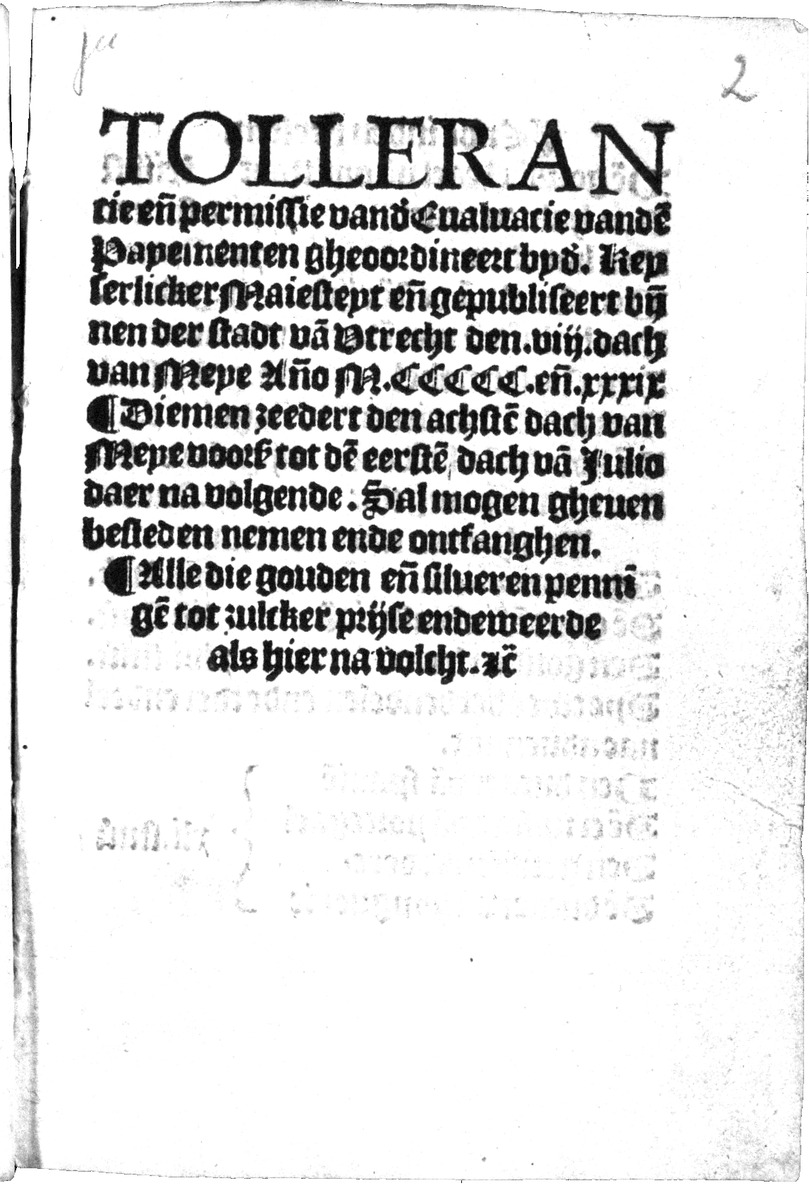 2
TOLLERAN
tie eñ permissie vand̄ Eualuacie vandē
Papementen gheoordineert byd̄. Key
serlicker Maiesteyt eñ gepubliseert bīj
nen der stadt vā Vtrecht den.viij.dach
van Meye Año M.CCCCC.eñ.xxxix
¶Diemen zeedert den achstē dach van
Meye voorß tot dē eerstē dach vā Julio
daer na volgende. Sal mogen gheuen
besteden nemen ende ontfanghen.
¶Alle die gouden eñ silueren pennī
gē tot zulcker prijse ende weerde
als hier na volcht. ⁊c̄